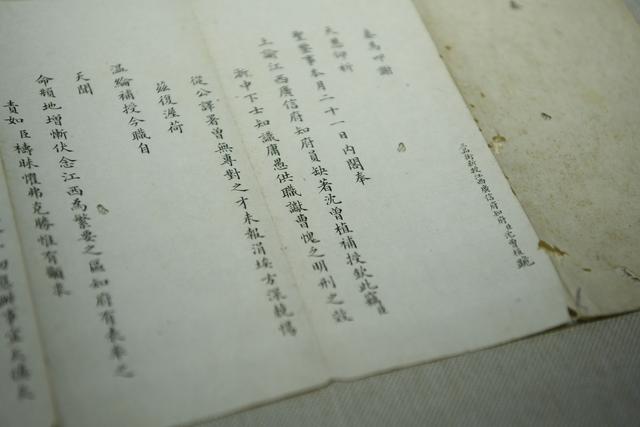 三品銜新授江西廣信府知府臣沈曾植跪
奏為叩謝
天恩仰祈
聖鑒事本月二十一日內閣奉
上諭江西廣信府知府員缺著沈曾植補授欽此竊臣
浙中下士知識庸愚供職讞曹愧乏明刑之效
從公譯署曾無專對之才未報涓埃方深兢惕
茲復渥荷
溫綸補授今職自
天聞
命頼地增慚伏念江西為繁要之區知府有表率之
責如臣檮昧懼弗克勝惟有